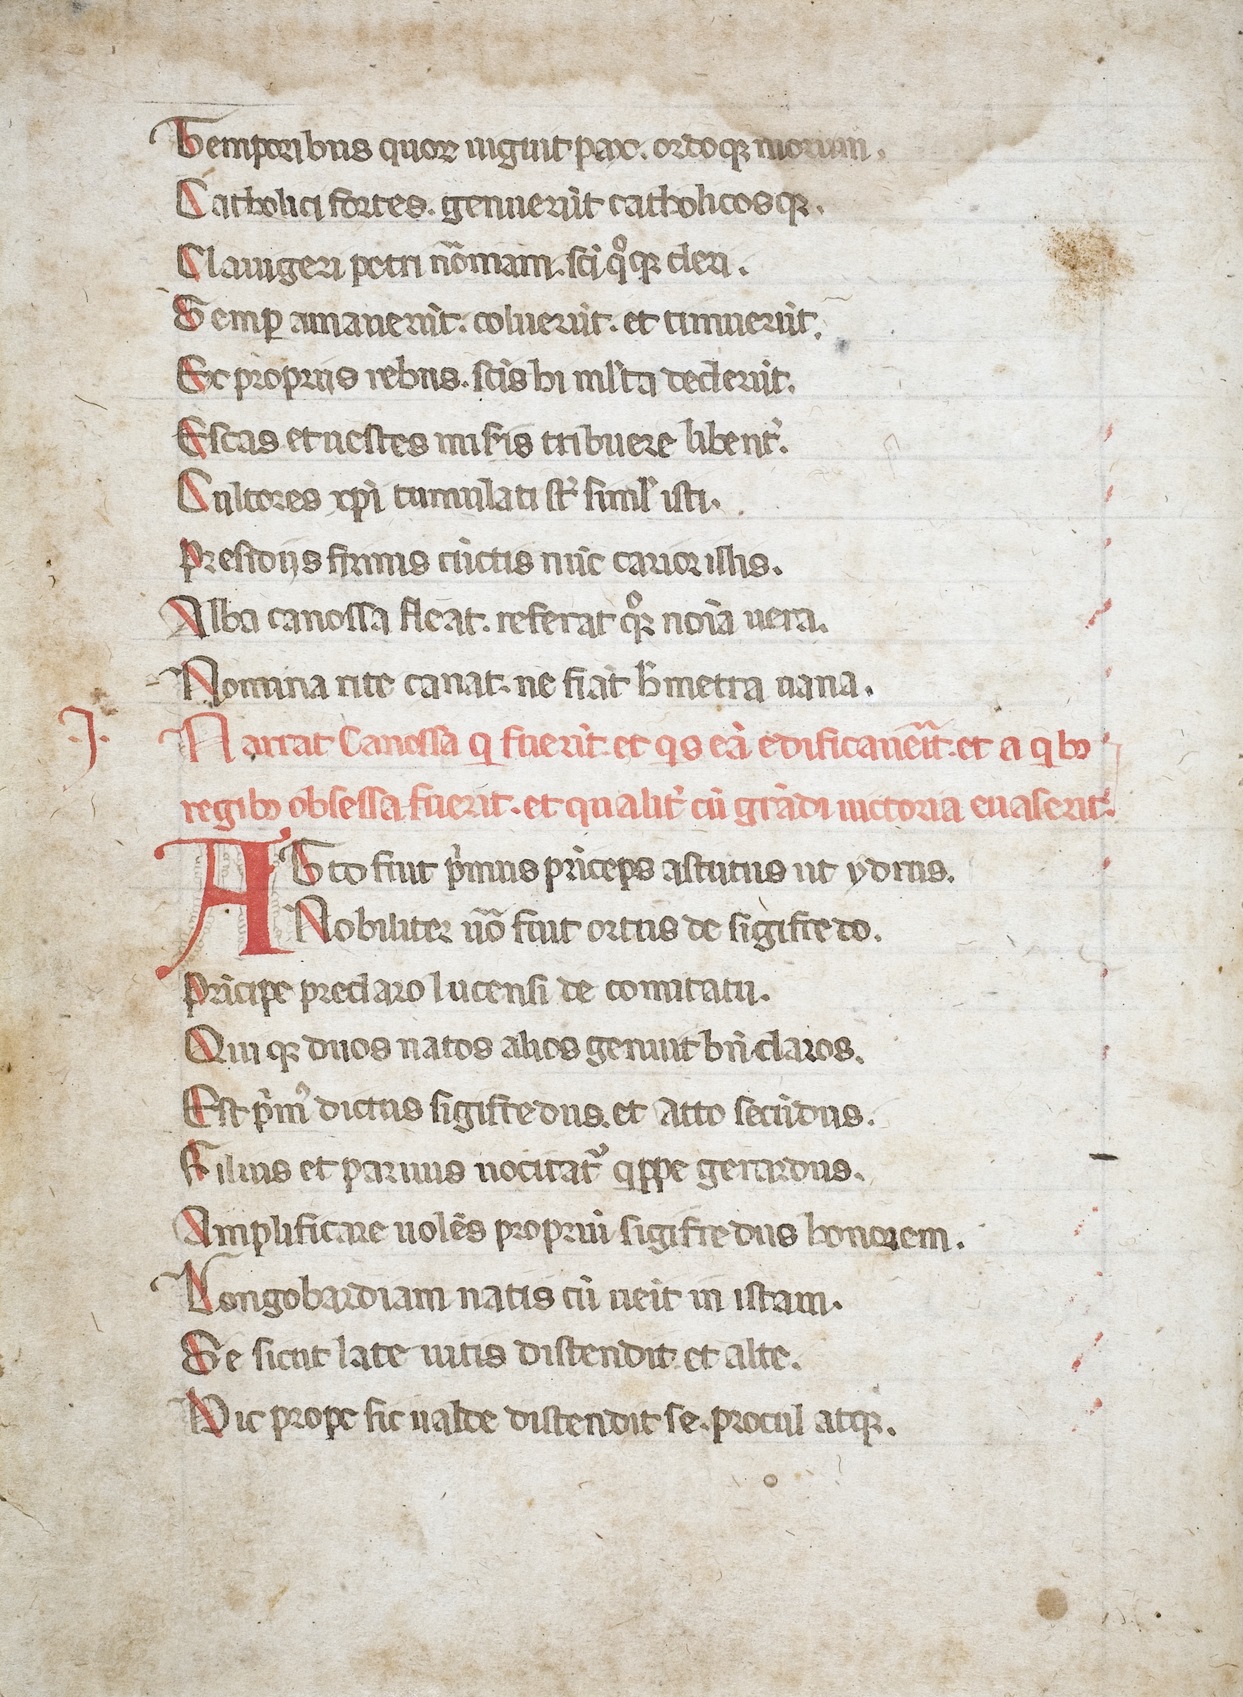 Temporibus quoꝝ uiguit pax. ordoqꝫ morum.
Catholici fortes. genuerūt catholicosqꝫ.
Clauigeri petri nōmam. sc̄i qͦqꝫ cleri.
Semꝑ amauerūt. coluerūt. et timuerūt.
Ex propriis rebus. sc̄is hi ml̄ta dederūt.
Escas et uestes misīs tribuere libent᷑.
Cultores xp̄i tumulati st᷑ simil᷑ isti.
Presidijs firmis cūctis nūc carior istis.
Alba canossa fleat. referat qͦꝝ noīa uera.
Nomina rite canat. ne fiāt h̄ metra uana.
.I.
Narrat Canossa q̄ fuerīt. et qs eā edificaueīt. et a qbꝫ
regibꝫ obsessa fuerit. et qualit᷑ cū grādi uictoria euaserit.
ATto fuit p̄mus prīceps astutus ut ydrus.
Nobiliter u̅o fuit ortus de sigifredo.
Prīcipe preclaro lucensi de comitatu.
Qui qꝫ duos natos alios genuit bn̄ claros.
Est p̄mꝰ dictus sigifredus. et Atto secūdus.
Filius et paruus uocitat᷑ qppe gerardus.
Amplificare uolēs propriū sigifredus honorem.
Longobardiam natis cū ueīt in istam.
Se sicut late uitis distendit et alte.
Hic prope sic ualde distendit se. procul atqꝫ.